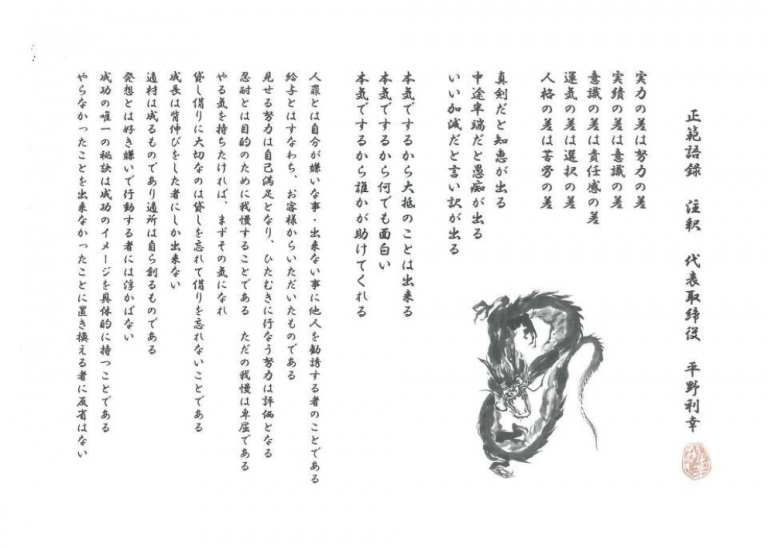 正範語録　注釈　代表取締役　平野利幸
実力の差は努力の差
実績の差は意識の差
意識の差は責任感の差
運気の差は選択の差
人格の差は苦労の差
真剣だと知恵が出る
中途半端だと愚痴が出る
いい加減だと言い訳が出る
本気でするから大抵のことは出来る
本気でするから何でも面白い
本気でするから誰かが助けてくれる
人罪とは自分が嫌いな事・出来ない事に他人を勧誘する者のことである
給与とはすなわち、お客様からいただいたものである
見せる努力は自己満足となり、ひたむきに行なう努力は評価となる
忍耐とは目的のために我慢することである　ただの我慢は卑屈である
やる気を持ちたければ、まずその気になれ
貸し借りに大切なのは貸しを忘れて借りを忘れないことである
成長は背伸びをした者にしか出来ない
適材は成るものであり適所は自ら創るものである
発想とは好き嫌いで行動する者には浮かばない
成功の唯一の秘訣は成功のイメージを具体的に持つことである
やらなかったことを出来なかったことに置き換える者に反省はない